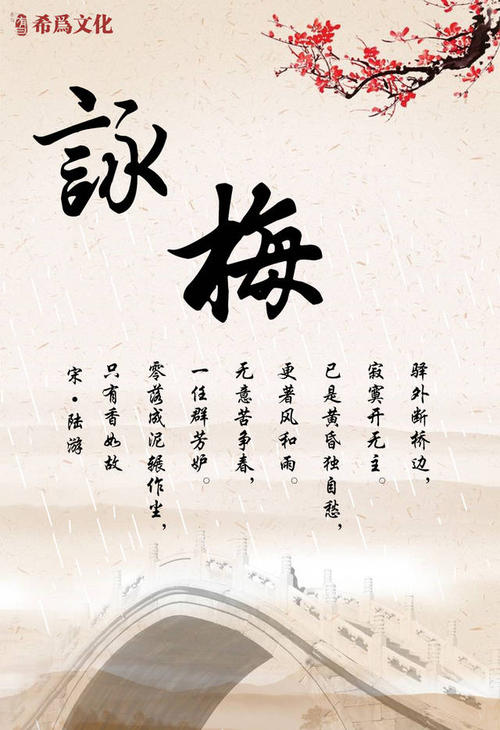 希爲文化
詠梅
驿外断桥边，
寂寞开无主。
已是黄昏独自愁，
更著风和雨。
无意苦争春，
一任群芳妒。
零落成泥辗作尘，
只有香如故
宋·陆游